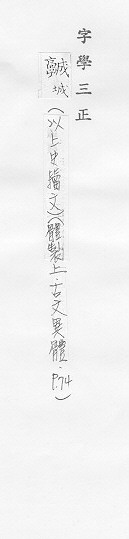 字學三正
𩫨城(以上史籀文)(體製上·古文異體·P.74)